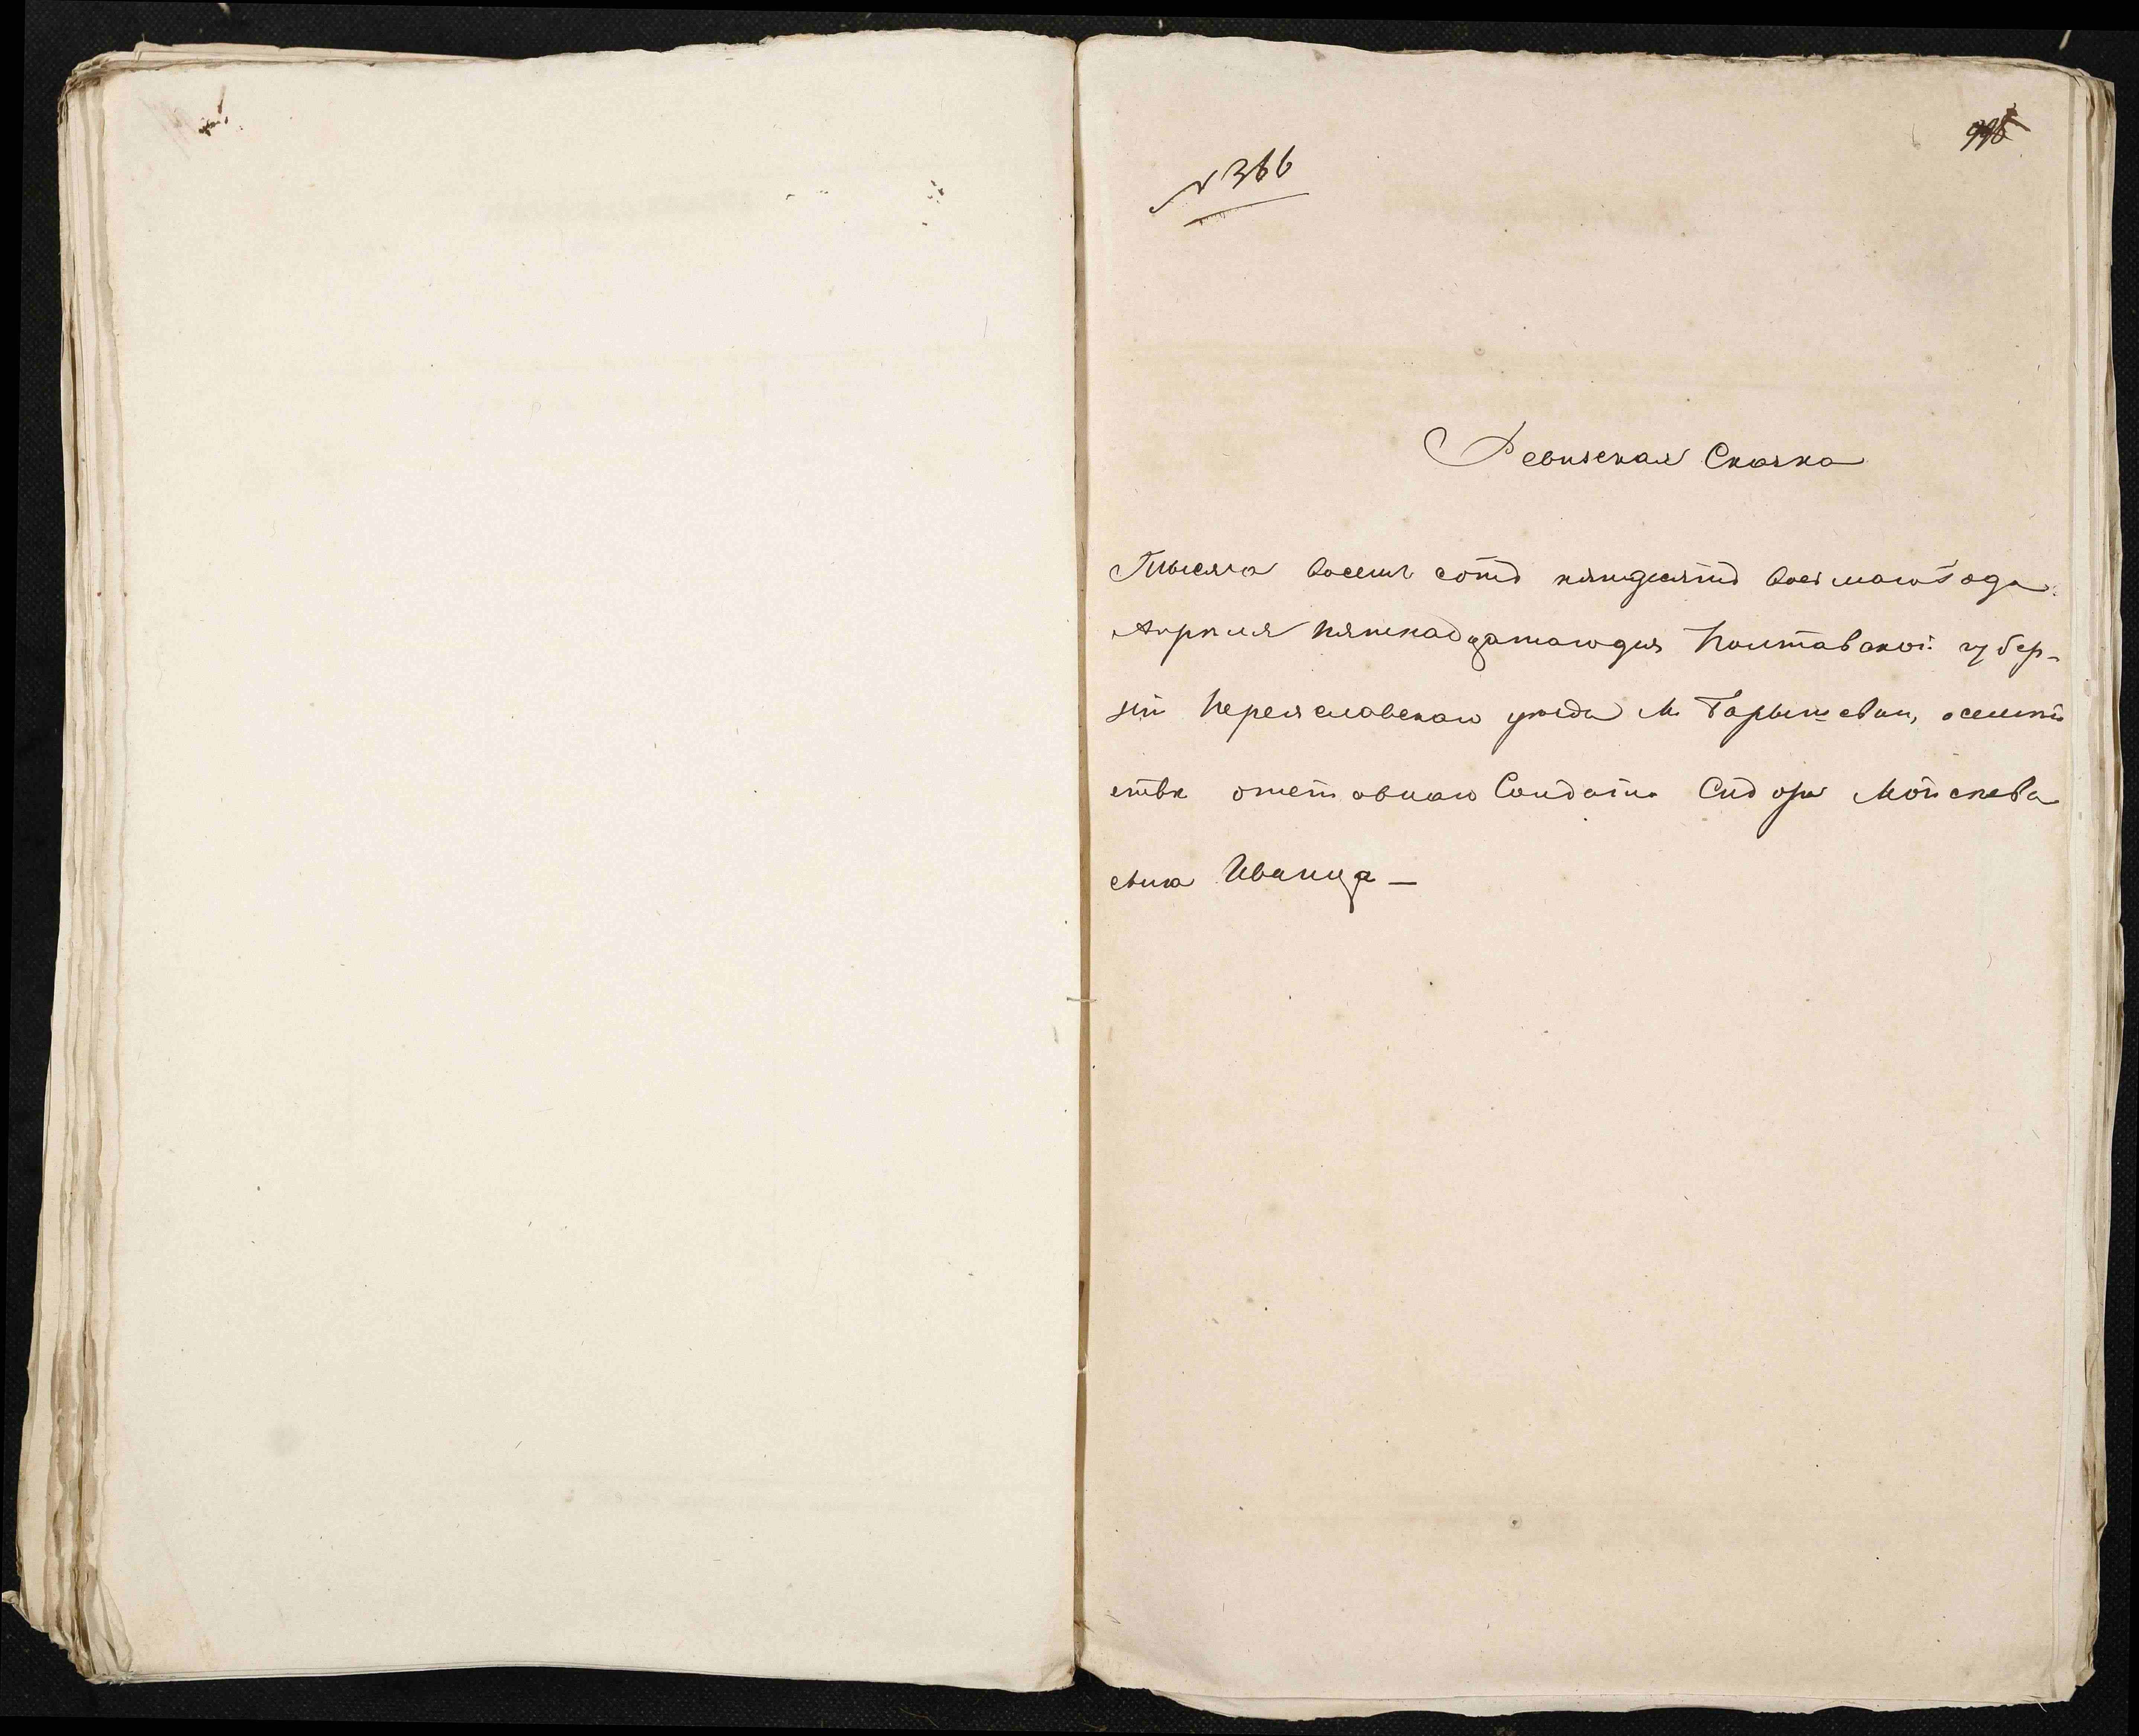 № 366
Ревизская Сказка
Тысяча восемь сотъ пятдесятъ восмаго года
Апреля пятнадцатаго дня Полтавской губер-
ніи Переяславскаго уезда М Барышевки, осемей
стве отставнаго Солдата Сидора Мойсеева
сына Иваница —